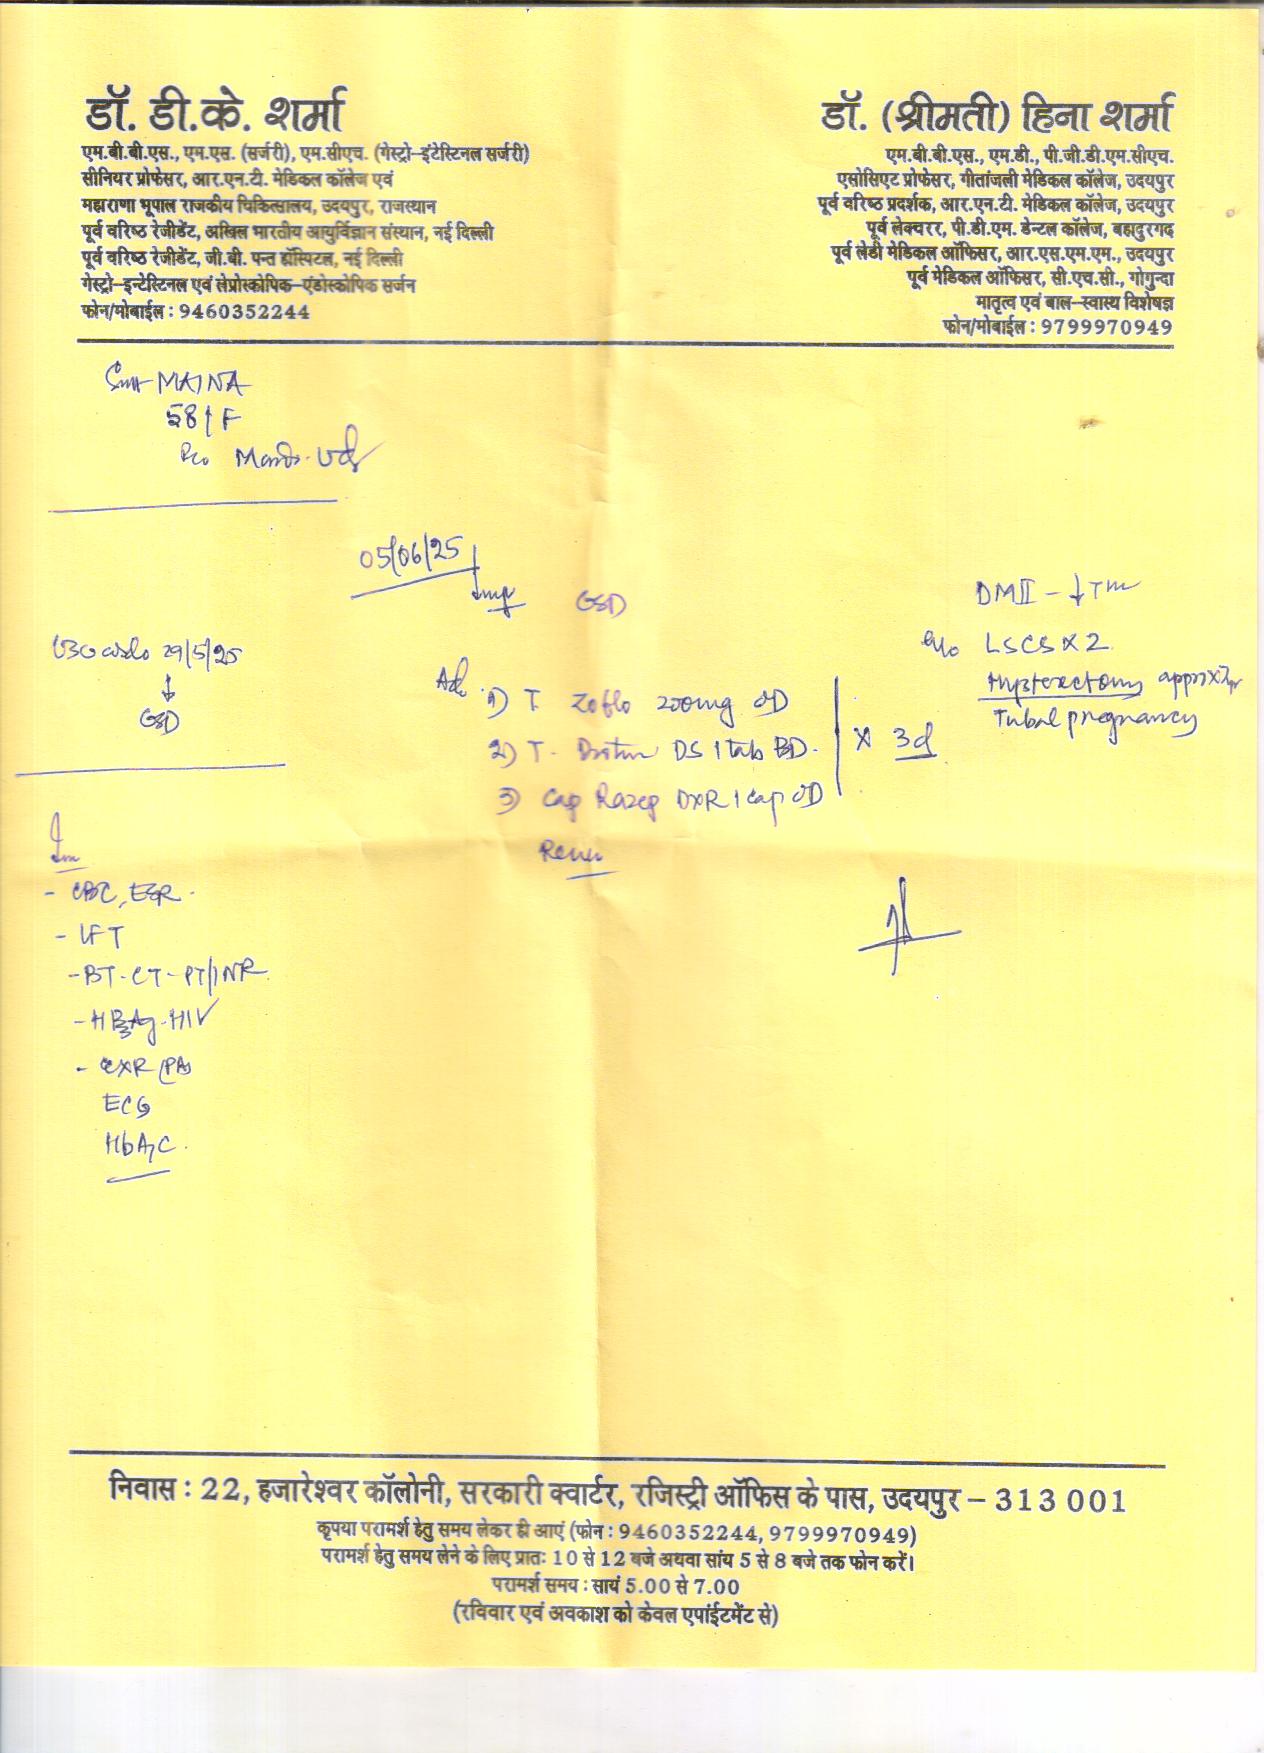 डॉ. डी.के. शर्मा
एम.बी.बी.एस., एम.एस. (सर्जरी), एम.सीएच. (गेस्ट्रो-इंटेस्टिनल सर्जरी)
सीनियर प्रोफेसर, आर.एन.टी. मेडिकल कॉलेज एवं
महाराणा भूपाल राजकीय चिकित्सालय, उदयपुर, राजस्थान
पूर्व वरिष्ठ रेजीडेंट, अखिल भारतीय आयुर्विज्ञान संस्थान, नई दिल्ली
पूर्व वरिष्ठ रेजीडेंट, जी.बी. पन्त हॉस्पिटल, नई दिल्ली
गेस्ट्रो-इन्टेस्टिनल एवं लेप्रोस्कोपिक-एंडोस्कोपिक सर्जन
फोन/मोबाईल : 9460352244
डॉ. (श्रीमती) हिना शर्मा
एम.बी.बी.एस., एम.डी., पी.जी.डी.एम.सीएच.
एसोसिएट प्रोफेसर, गीतांजली मेडिकल कॉलेज, उदयपुर
पूर्व वरिष्ठ प्रदर्शक, आर.एन.टी. मेडिकल कॉलेज, उदयपुर
पूर्व लेक्चरर, पी.डी.एम. डेन्टल कॉलेज, बहादुरगढ़
पूर्व लेडी मेडिकल ऑफिसर, आर.एस.एम.एम., उदयपुर
पूर्व मेडिकल ऑफिसर, सी.एच.सी., गोगुन्दा
मातृत्व एवं बाल-स्वास्थ्य विशेषज्ञ
फोन/मोबाईल : 9799970949
Smt MAINA
58/F
05/06/25
Imp GSD
DM II - ↓
LSCS x 2
Hysterectomy approx
Tubal pregnancy
29/5/25
↓
GSD
Adv
1) T. Zoflo 200mg OD
2) T. DS 1 tab BD.
3) Cap Razep DXR 1 cap OD
x 3d
- CBC, ESR
- LFT
- BT-CT-PT/INR
- HBsAg-HIV
- CXR (PA)
ECG
HbA1C
निवास : 22, हजारेश्वर कॉलोनी, सरकारी क्वार्टर, रजिस्ट्री ऑफिस के पास, उदयपुर – 313 001
कृपया परामर्श हेतु समय लेकर ही आएं (फोन : 9460352244, 9799970949)
परामर्श हेतु समय लेने के लिए प्रातः 10 से 12 बजे अथवा सांय 5 से 8 बजे तक फोन करें।
परामर्श समय : सायं 5.00 से 7.00
(रविवार एवं अवकाश को केवल एपांईटमेंट से)